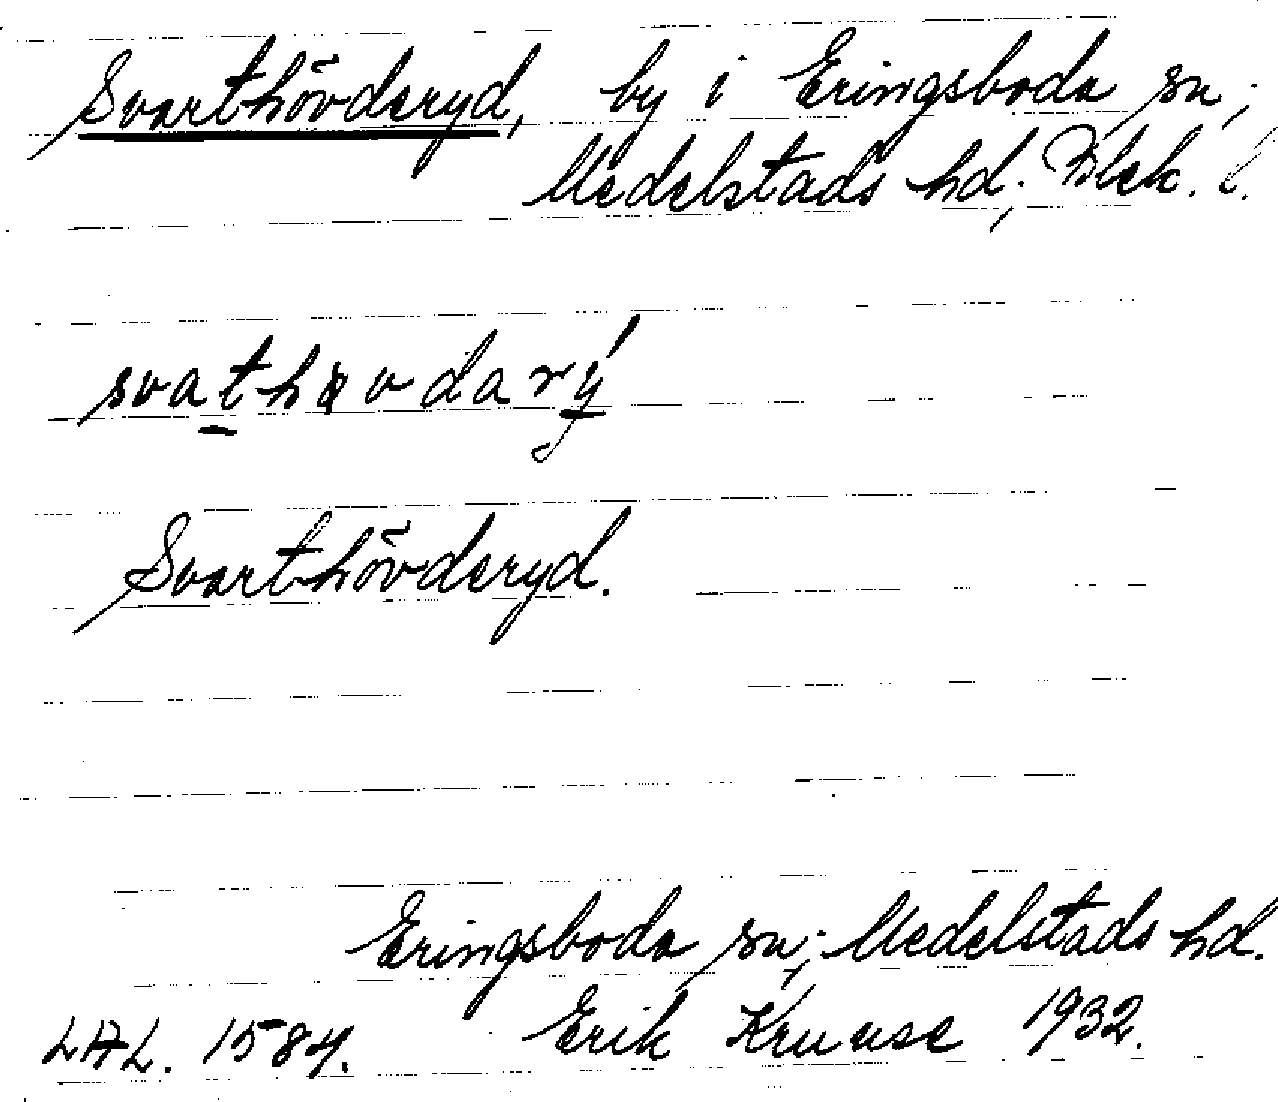 Svarthövderyd, by i Eringsboda sn;
Medelstads hd; Blek. l.
svathøvdarý
Svarthövderyd.
Eringsboda sn; Medelstads hd.
LAL. 1584. Erik Kruuse 1932.